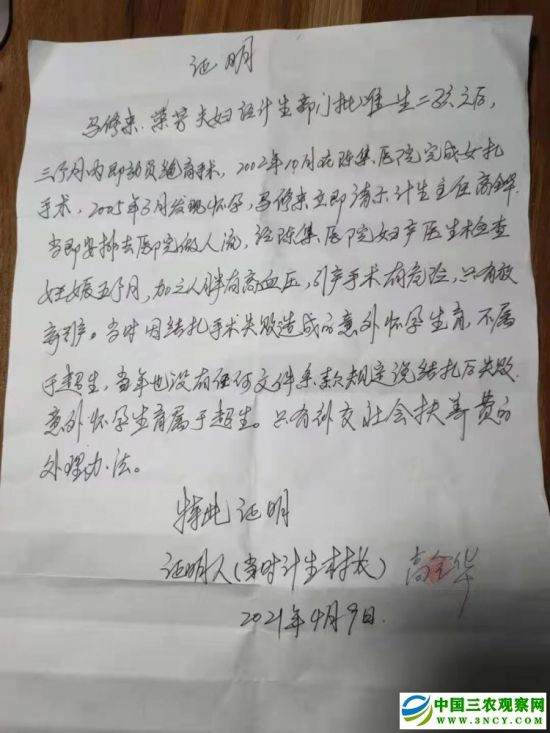 证明
马修来、荣芳夫妇经计生部门批准生二孩之后，
三个月内即动员绝育手术，2002年10月在陈集医院完成女扎
手术，2005年3月发现怀孕，马修来立即请示计生主任高
当即安排去医院做人流，经陈集医院妇产医生检查
妊娠五个月，加之人胖有高血压，引产手术有危险，只有放
弃引产。当时因结扎手术失败造成的意外怀孕生育，不属
于超生，当年也没有任何文件条款规定说结扎后失败
意外怀孕生育属于超生。只有补交社会扶养费的
处理办法。
特此证明
证明人（当时计生村长）高全华
2021年4月9日.
中国三农观察网
WWW.3NCY.COM